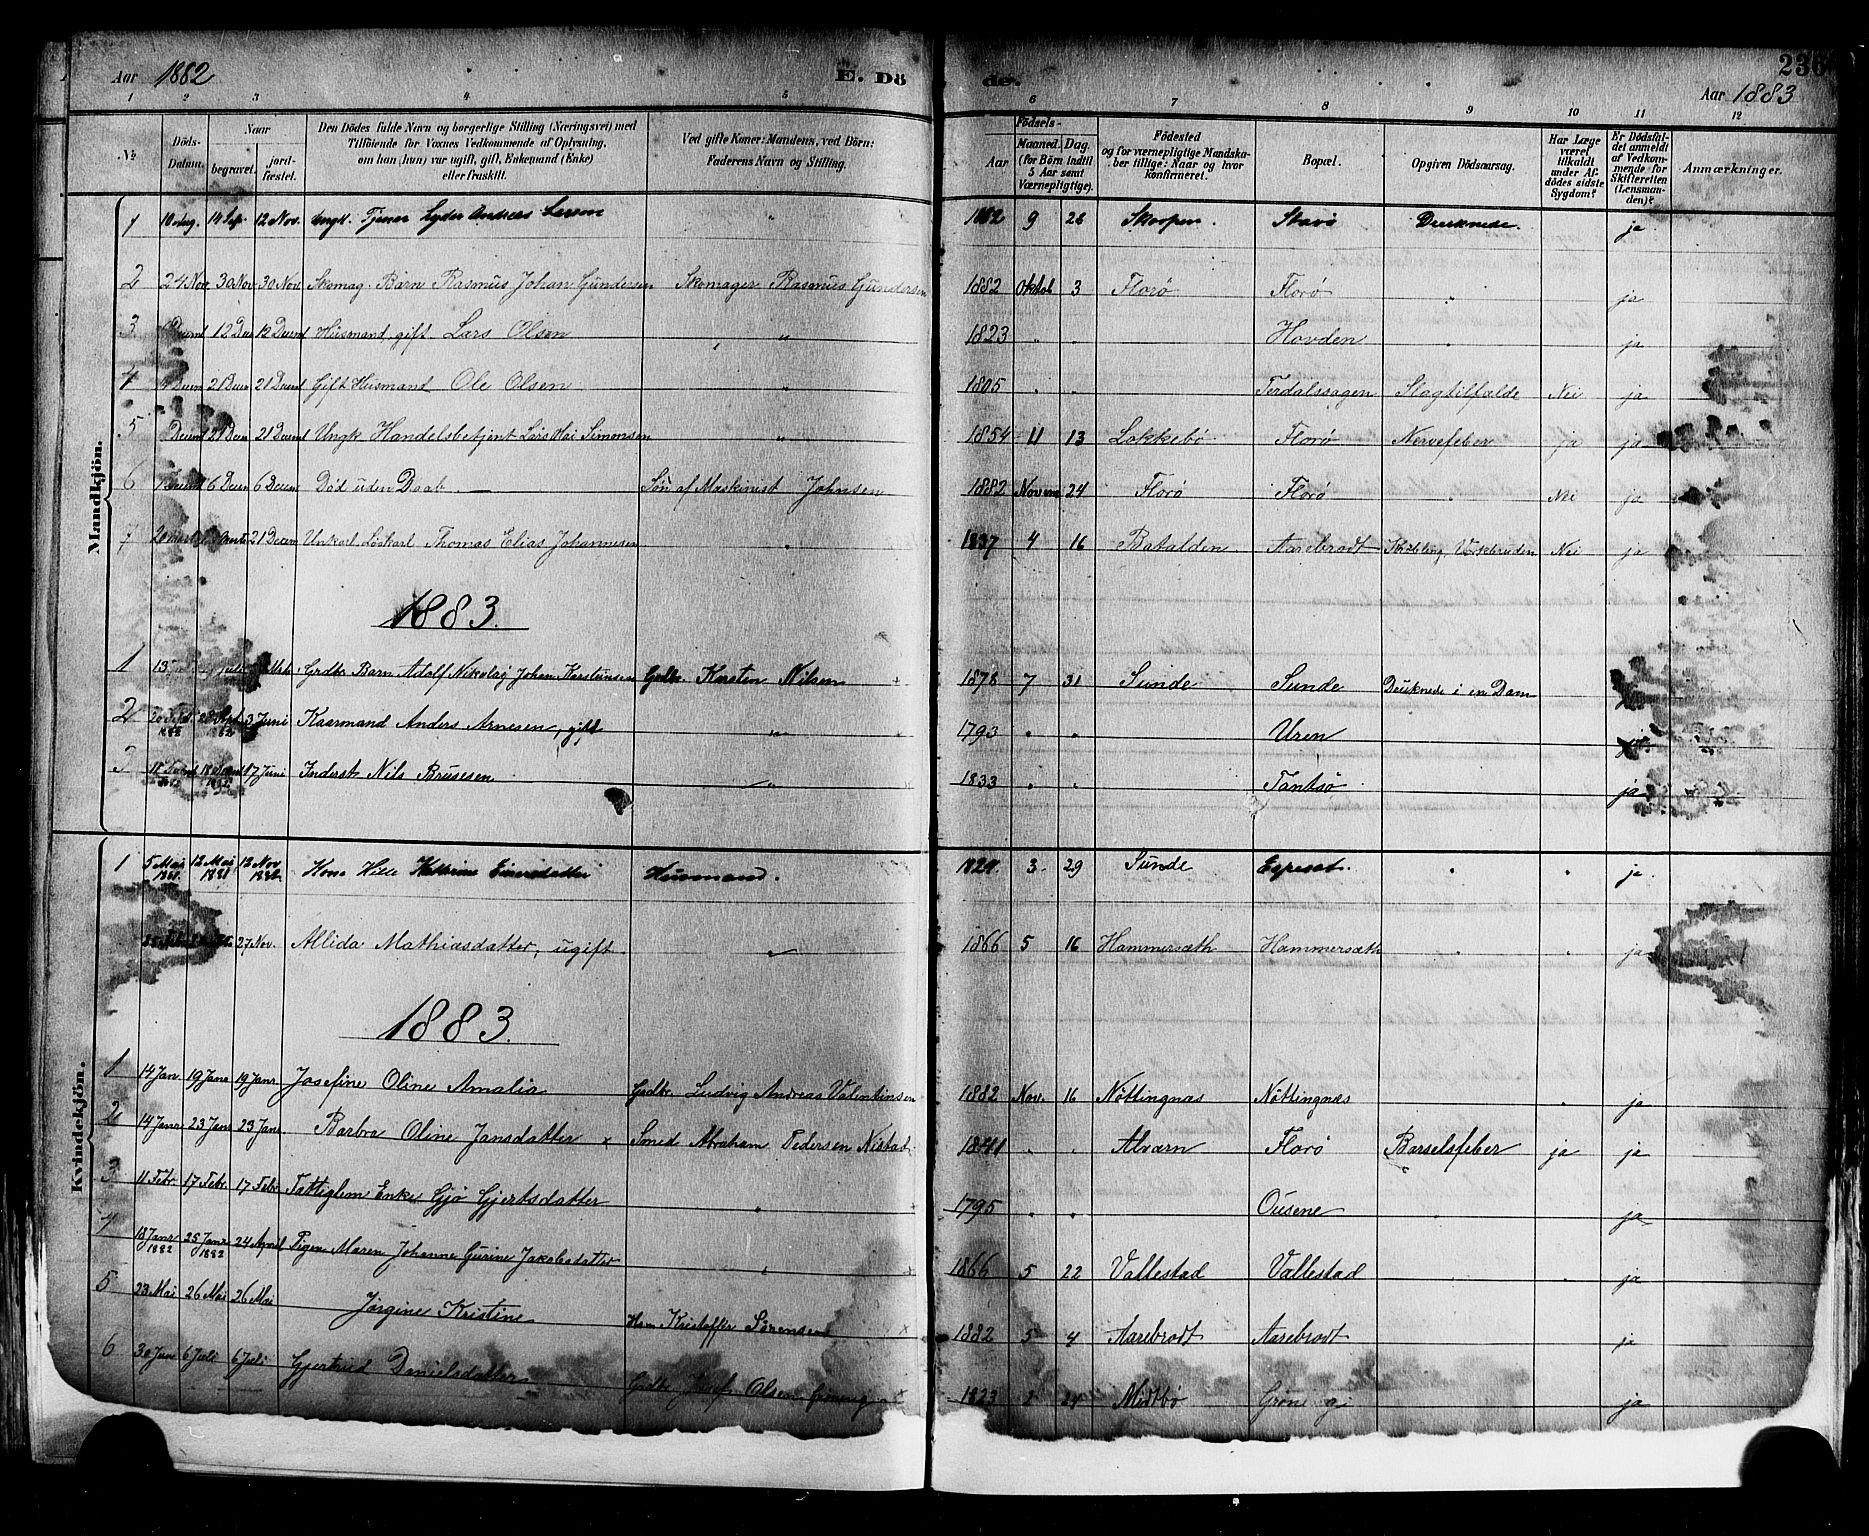 Aar 1882 E. Dö
de. 236
Aar 1883
1 2 3 4 5 6 7 8 9 10 11 12
№
Döds-
Datum.
Naar
begravet.
jord-
fæstet.
Den Dödes fulde Navn og borgerlige Stilling (Næringsvei) med
Tilföiende for Voxnes Vedkommende af Oplysning,
om han (hun) var ugift, gift, Enkemand (Enke)
eller fraskilt.
Ved gifte Koner: Mandens, ved Börn:
Faderens Navn og Stilling.
Födsels-
Aar
Maaned. Dag.
(for Börn indtil
5 Aar samt
Værnepligtige).
Födested
og for værnepligtige Mandska-
ber tillige: Naar og hvor
konfirmeret.
Bopæl.
Opgiven Dödsaarsag.
Har Læge
været
tilkaldt
under Af-
dödes sidste
Sygdom?
Er Dödsfal-
det anmeldt
af Vedkom-
mende for
Skifteretten
(Lensman-
den)?
Anmærkninger.
Mandkjön.
1 10 Aug. 14 Sep. 12 Nov. Ungk. Tjener Lyder Andreas Larsen " 1862 9 28 Skorpen Stavö Druknede. ja
2 24 Nov 30 Nov 30 Nov. Skomag. Barn Rasmus Johan Gundersen Skomager Rasmus Gundersen 1882 Oktob 3 Florö Florö " ja
3 12 Dec 12 Decmb Husmand, gift Lars Olsen " 1823 " " Hovden " ja
4 21 Decm 21 Decmb Gift Husmand Ole Olsen " 1805 " " Slagtilfælde Nei ja
5 Decmb 21 Decm 21 Decmb Ungk Handelsbetjent Lars Simonsen " 1854 11 13 Lokkebö Florö Nervefeber ja ja
6 6 Decm 6 Decm Död uden Daab Sön af Maskinist Johnsen 1882 Novem 24 Florö Florö Nei ja
7 21 Decem Unkarl Löskarl Thomas Elias Johannesen " 1837 4 16 Batalden Aarebrodt Nei ja
1883.
1 13 Grdbr. Barn Adolf Nikolaj Johan Karstensen Grdbr. Karsten Nilsen 1878 7 31 Sunde Sunde Druknede i en Dam
2 3 Juni Kaarmand Anders Arnesen, gift " 1793 " " Uren
3 17 Juni Inderst Nils Brusesen " 1833 " " Tantsö ja
Kvindekjön.
1 5 Mai 1881. 12 Mai 1881 12 Nov 1882. Kone Katrine Einersdatter Husmand. 1821 3. 29 Sunde " ja
27 Nov. Allida Mathiasdatter, ugift " 1866 5 16 Hammersæth Hammersæth " " ja
1883.
1 14 Jan 19 Janr 19 Janr Josefine Oline Amalia Grdbr. Ludvig Andreas Valentinsen 1882 Nov. 16 Nöttingnæs Nöttingnæs ja
2 14 Janr 23 Janr 23 Janr Barbra Oline Jansdatter x Smed Abraham Pedersen Nistad 1841 " " Alværn Florö Barselsfeber ja ja
3 11 Febr. 17 Febr. 17 Febr Fattiglem Enke Gjö Gjertsdatter " 1795 " " Ousene ja
4 18 Janr 1882 25 Janr 1882 24 April Pigen Maren Johanne Gurine Jakobsdatter " 1866 5 22 Vallestad Vallestad ja
5 23 Mai 26 Mai 26 Mai Jörgine Kristine Hm Kristoffer Sörensen x 1882 5 4 Aarebrodt Aarebrodt ja
6 30 Jun 6 Juli 6 Juli Gjertrud Danielsdatter Grdbr. Josef Olsen 1823 2 24 Midtbö ja